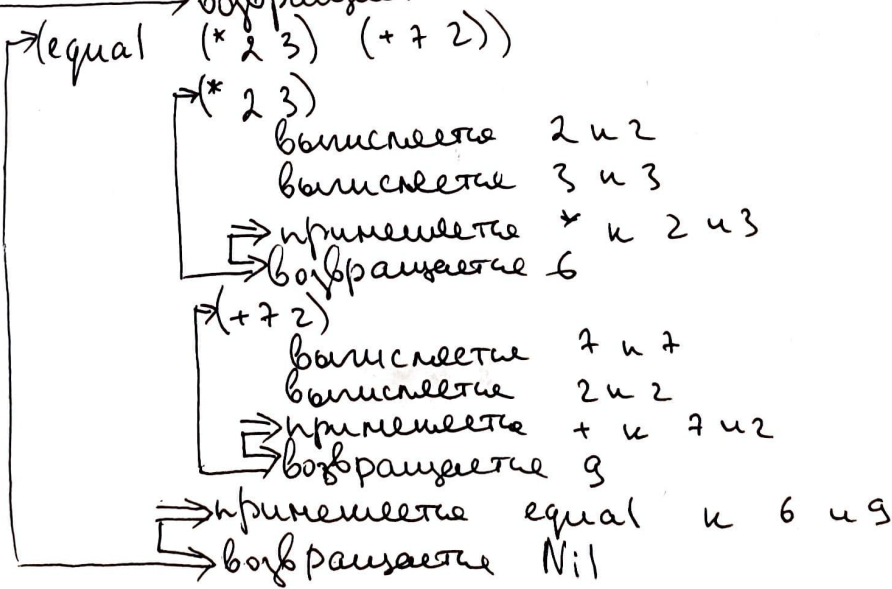 возвращ
(equal (* 2 3) (+ 7 2))
(* 2 3)
вычисляется 2 к 2
вычисляется 3 к 3
применяется * к 2 и 3
возвращается 6
(+ 7 2)
вычисляется 7 к 7
вычисляется 2 к 2
применяется + к 7 и 2
возвращается 9
применяется equal к 6 и 9
возвращается Nil